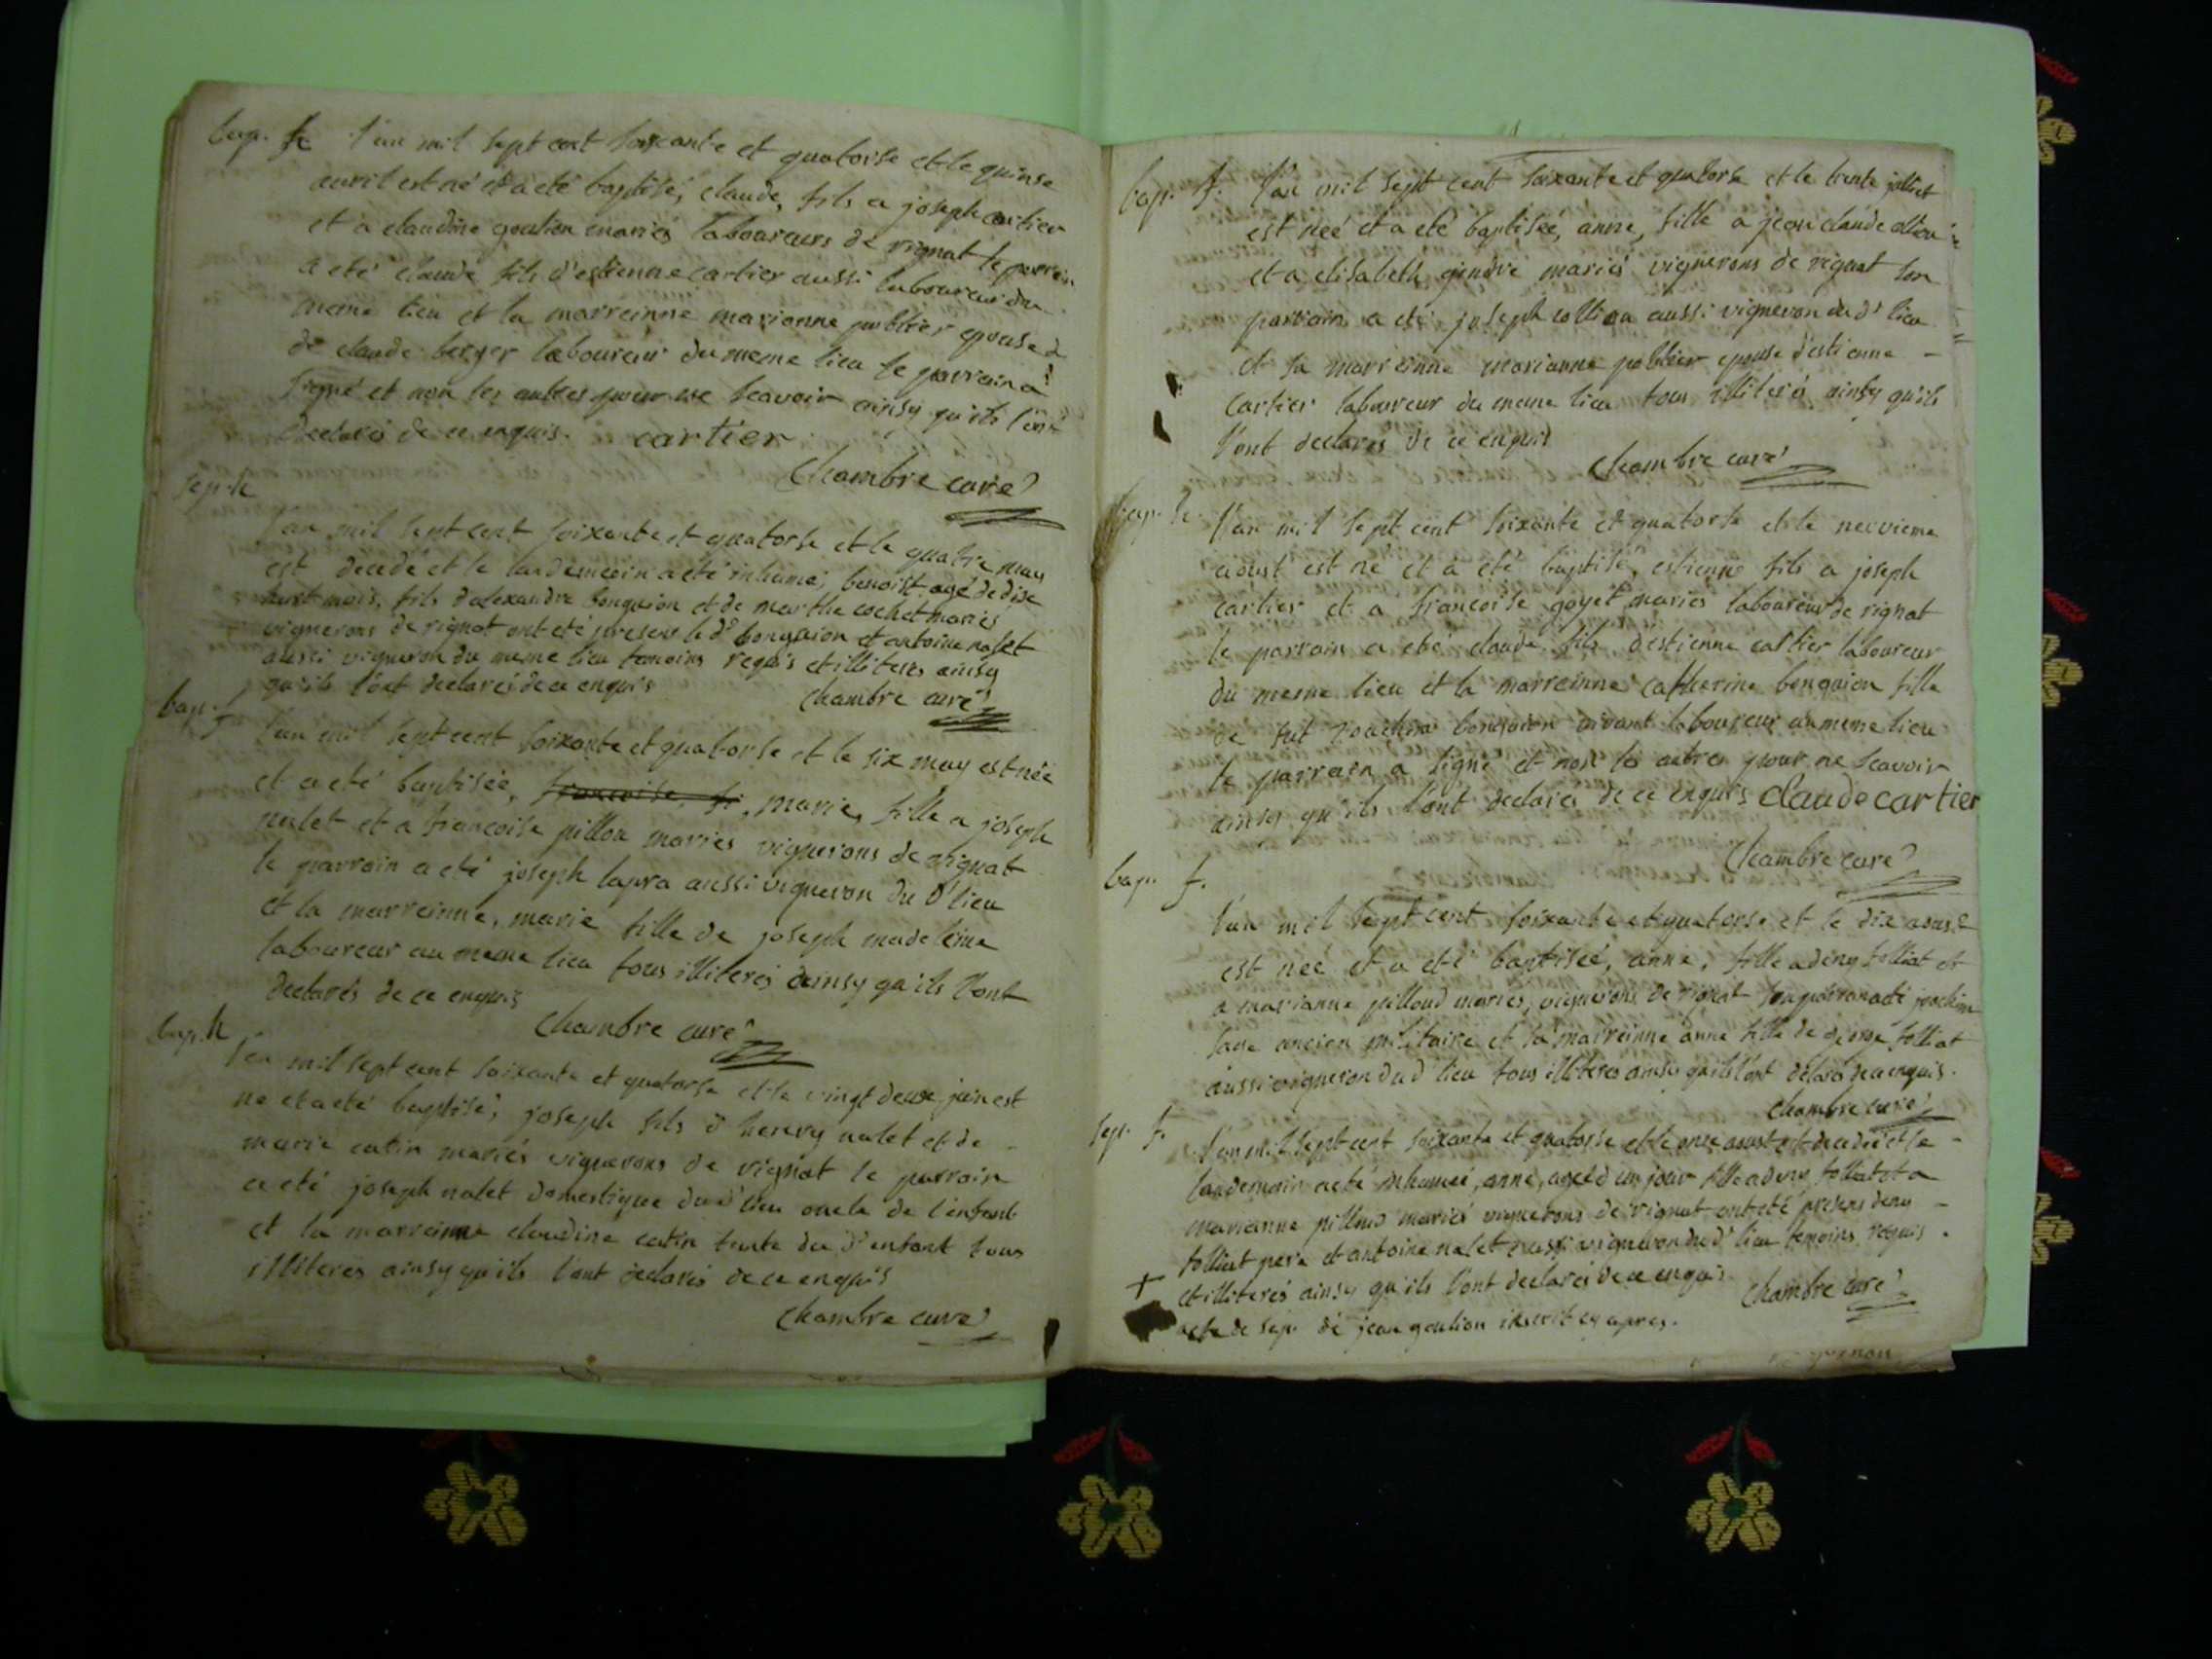 bap. h l'an mil sept cent soixante et quatorse et le quinse
avril est né et a eté baptisé, claude, fils a joseph cartier
et a claudine goulion mariés laboureurs de rignat le parrein
a eté claude fils d'estienne cartier aussi laboureur du
meme lieu et la marreinne marianne pobtier epouse d
de claude berger laboureur du meme lieu le parrein a
signé et non les autres pour ne scavoir ainsy qu'ils l'ont
declarés de ce enquis. cartier
Chambre curé
sep. h
l'an mil sept cent soixante et quatorse et le quatre may
est decedé et le landemain a eté inhumé, benoist agé de dise
huit mois, fils d'alexandre bonguion et de marthe cochet mariés
vignerons de rignat ont eté presens le d. bonguion et antoine nalet
aussi vigneron du meme lieu temoins requis et illiterés ainsy
qu'ils l'ont declarés de ce enquis Chambre curé
bap. f
l'an mil sept cent soixante et quatorse et le six may est née
et a eté baptisée, francoise, marie, fille a joseph
nalet et a francoise pillou mariés vignerons de rignat
le parrain a eté joseph lapra aussi vigneron du d' lieu
et la marreinne, marie fille de joseph madeleine
laboureur au meme lieu tous illiterés ainsy qu'ils l'ont
declarés de ce enquis
Chambre curé
bap. h
l'an mil sept cent soixante et quatorse et le vingt deux juin est
né et a eté baptisé, joseph fils d'henry nalet et de
marie catin mariés vignerons de rignat le parrain
a eté joseph nalet domestique du d' lieu oncle de l'enfant
et la marreinne claudine catin tante du d' enfant tous
illiterés ainsy qu'ils l'ont declarés de ce enquis
Chambre curé
bap. f. l'an mil sept cent soixante et quatorse et le trente jullet
est neé et a eté baptiseé, anne, fille a jean claude
et a elisabeth genevre mariés vignerons de rignat son
parrain a eté joseph collion aussi vigneron du d' lieu
et sa marreinne marianne pobtier epouse d'estienne
cartier laboureur du meme lieu tous illiterés ainsy qu'ils
l'ont declarés de ce enquis
Chambre curé
bap. h. l'an mil sept cent soixante et quatorse et le neuvieme
aoust est né et a eté baptisé, estienne fils a joseph
cartier et a francoise goyet mariés laboureur de rignat
le parrain a eté claude fils d'estienne cartier laboureur
du meme lieu et la marreinne catherine bonguion fille
de fut joachim bonguion vivant laboureur au meme lieu
le parrain a signé et non les autres pour ne scavoir
ainsy qu'ils l'ont declarés de ce enquis Claude cartier
Chambre curé
bap. f.
l'an mil sept cent soixante et quatorse et le dix aoust
est neé et a eté baptiseé, anne, fille a deny folliat et
a marianne pilloud mariés, vignerons de rignat son parran a eté joachim
ancien militaire et sa marreinne anne fille de george folliat
aussi vigneron du d' lieu tous illiterés ainsy qu'ils l'ont declaré de ce enquis.
Chambre curé
sep. f. l'an mil sept cent soixante et quatorse et le onse aoust est decedeé et le
landemain a eté inhumeé, anne, ageé d'un jour fille a deny folliat et a
marianne pilloud mariés vignerons de rignat ont eté presens deny
folliat pere et antoine nalet aussi vigneron du d' lieu temoins requis
et illiterés ainsy qu'ils l'ont declarés de ce enquis. Chambre curé
+ acte de sep. de jean goulion inscrit cy apres.